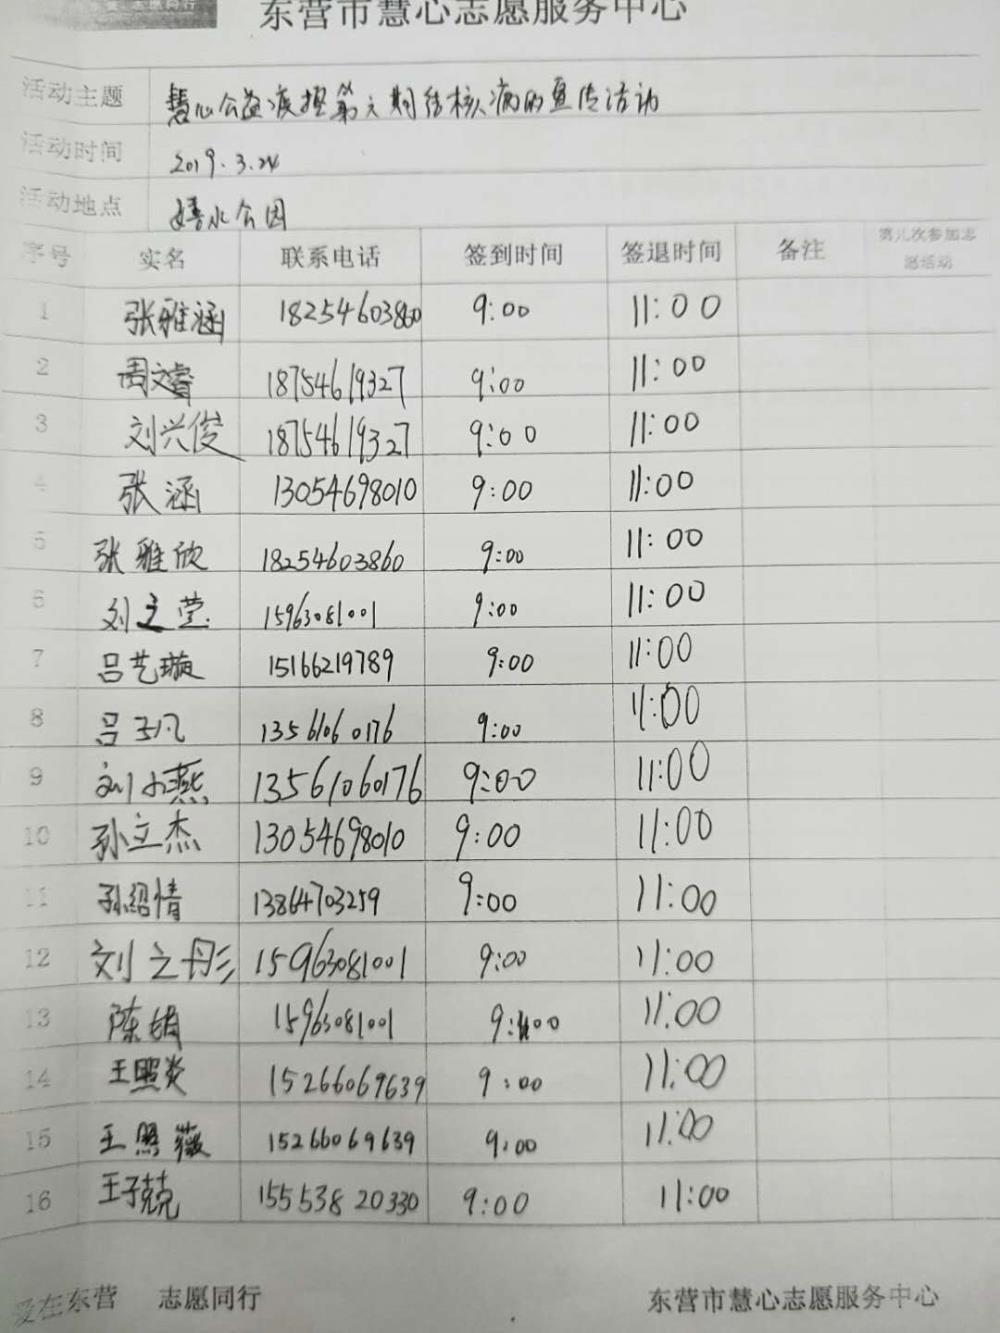 东营市慧心志愿服务中心
活动主题 慧心公益疾控第六期结核病的宣传活动
活动时间 2019.3.24
活动地点 嬉水公园
序号 实名 联系电话 签到时间 签退时间 备注 第几次参加志愿活动
1 张雅涵 18254603860 9:00 11:00
2 周文睿 18754619327 9:00 11:00
3 刘兴俊 18754619327 9:00 11:00
4 张涵 13054698010 9:00 11:00
5 张雅欣 18254603860 9:00 11:00
6 刘之莹 15963081001 9:00 11:00
7 吕艺璇 15166219789 9:00 11:00
8 吕子凡 13561060176 9:00 11:00
9 刘小燕 13561060176 9:00 11:00
10 孙立杰 13054698010 9:00 11:00
11 孙绍情 13864703259 9:00 11:00
12 刘之彤 15963081001 9:00 11:00
13 陈娟 15963081001 9:00 11:00
14 王照炎 15266069639 9:00 11:00
15 王照薇 15266069639 9:00 11:00
16 王子兢 15553820330 9:00 11:00
爱在东营 志愿同行 东营市慧心志愿服务中心